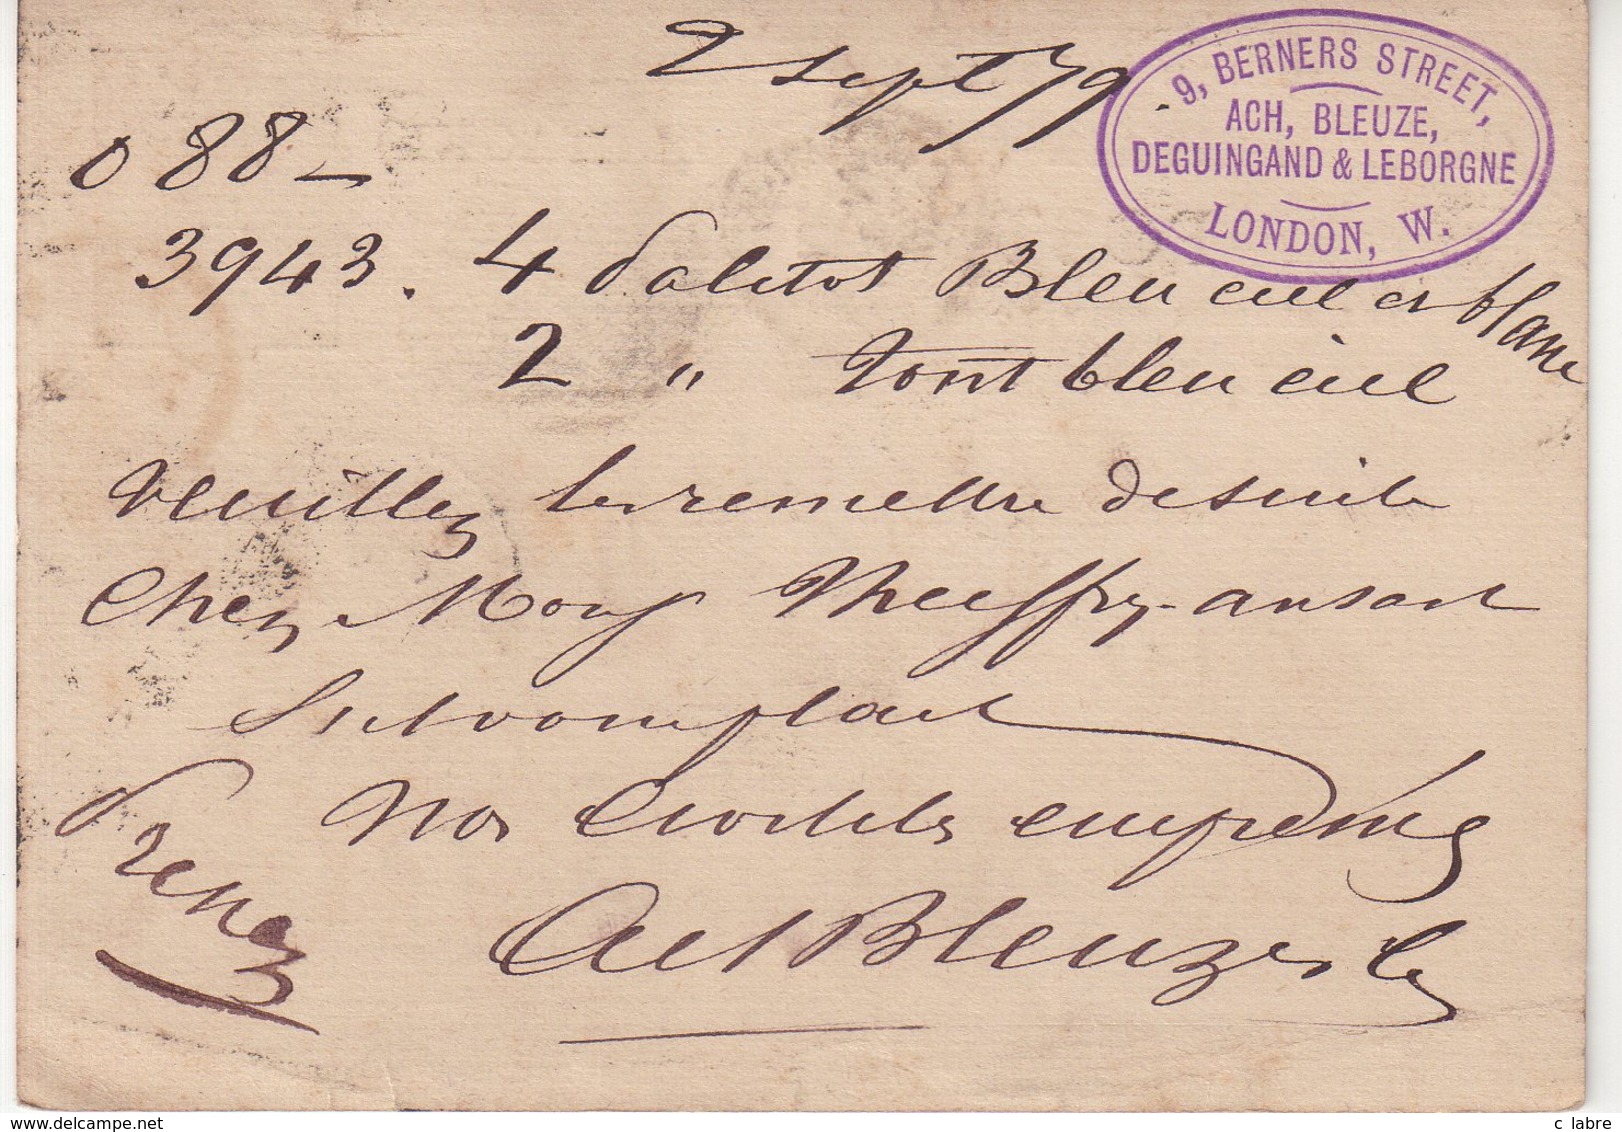 2 sept 79
9, BERNERS STREET,
ACH, BLEUZE,
DEGUINGAND & LEBORGNE
LONDON, W.
O 88 –
3943. 4 Paletot Bleu ciel et blanc
2 " tout bleu ciel
Veuillez les remettre de suite
Chez Mons
Sil vous plait
Nos Civilités empressés
Act Bleuze & Cy
delcampe.net
c labre